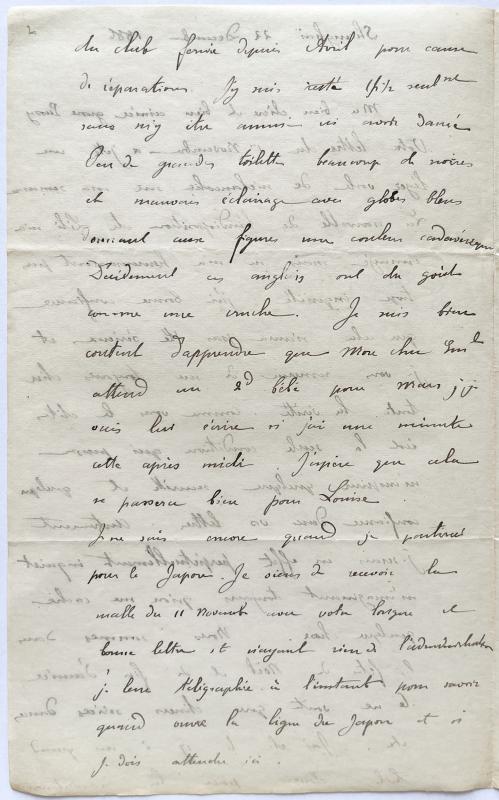 2
du club fermé depuis Avril pour cause
de réparations. J'y suis resté 1h1/2 seulmt
sans m'y être amusé ni avoir dansé
Peu de grandes toilettes beaucoup de noires
et mauvais éclairage avec globes bleus
donnant aux figures une couleur cadavérique
Décidément ces anglais ont du goût
comme une cruche. Je suis bien
content d'apprendre que mon cher Emle
attend un 2d bébé pour Mars, je
vais lui écrire si j'ai une minute
cette après midi. J'espère que cela
se passera bien pour Louise.
Je ne sais encore quand je partirai
pour le Japon. Je viens de recevoir la
malle du 11 Novembre avec votre longue et
bonne lettre et n'ayant rien de l'administration
je leur télégraphie à l'instant pour savoir
quand ouvre la ligne du Japon et si
je dois attendre ici.